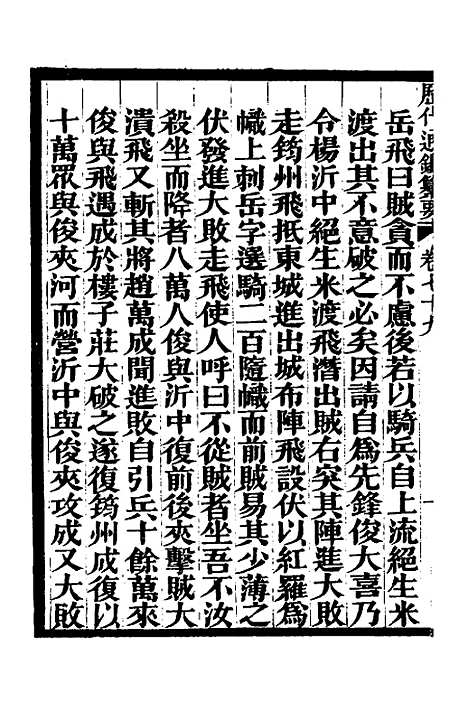 歷代通鑑纂要 卷七十九 一
岳飛曰賊貪而不慮後若以騎兵自上流絕生米
渡出其不意破之必矣因請自爲先鋒俊大喜乃
令楊沂中絕生米渡飛潛出賊右突其陣進大敗
走筠州飛抵東城進出城布陣飛設伏以紅羅爲
幟上刺岳字選騎二百隨幟而前賊易其少薄之
伏發進大敗走飛使人呼曰不從賊者坐吾不汝
殺坐而降者八萬人俊與沂中復前後夾擊賊大
潰飛又斬其將趙萬成聞進敗自引兵十餘萬來
俊與飛遇成於樓子莊大破之遂復筠州成復以
十萬眾與俊夾河而營沂中與俊夾攻成又大敗